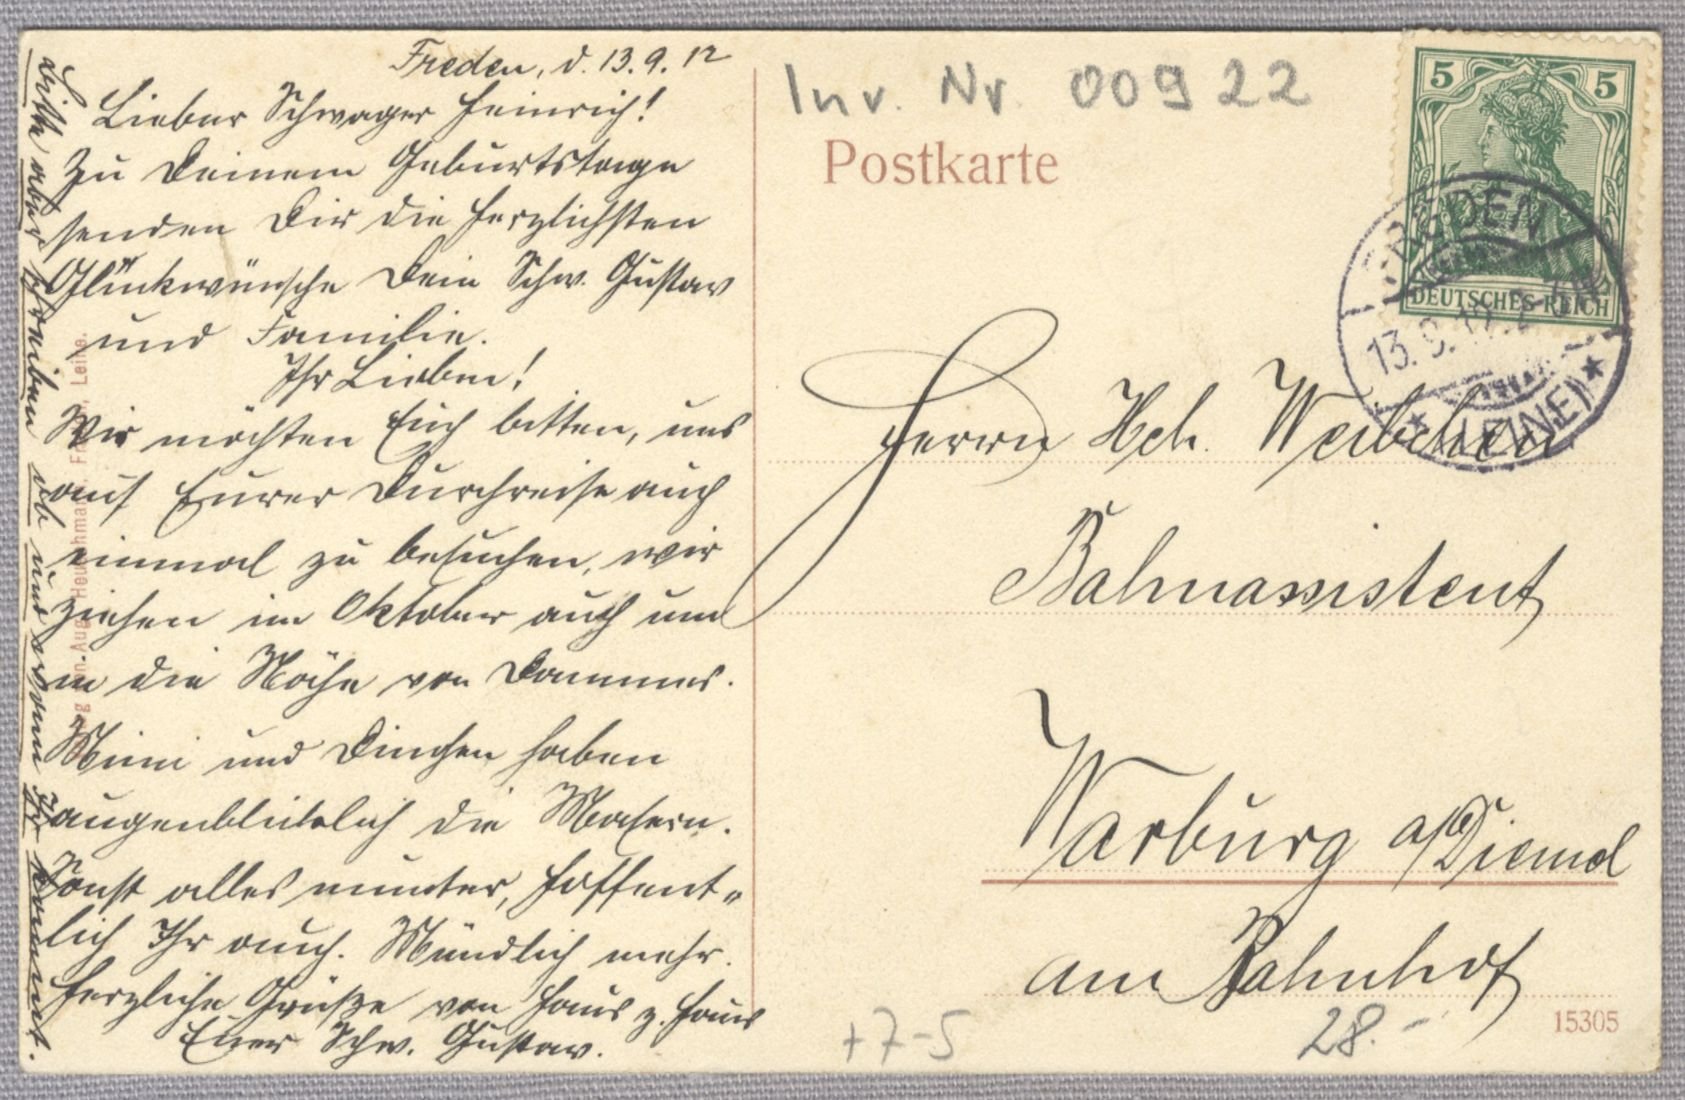 Freden, d. 13.9.12
Lieber Schwager Heinrich!
Zu Deinem Geburtstage
senden Dir die herzlichsten
Glückwünsche Dein Schw. Gustav
und Familie.
Ihr Lieben!
Wir möchten Euch bitten, uns
auf Eurer Durchreise auch
einmal zu besuchen, wir
ziehen im Oktober auch um
in die Nähe von
Mimi und Dinchen haben
augenblicklich die Masern.
Sonst alles munter, hoffent-
lich Ihr auch. Mündlich mehr.
Herzliche Grüße von Haus z. Haus
Euer Schw. Gustav.
Bitte aber schreiben ob und wann Ihr kommt.
Inv. Nr. 00922
Postkarte
5 5
DEUTSCHES REICH
FREDEN
13.9.12
(LEINE)
Herrn Hch. Weibchen
Bahnassistent
Warburg a/Diemel
am Bahnhof
+7-5
28.-
15305